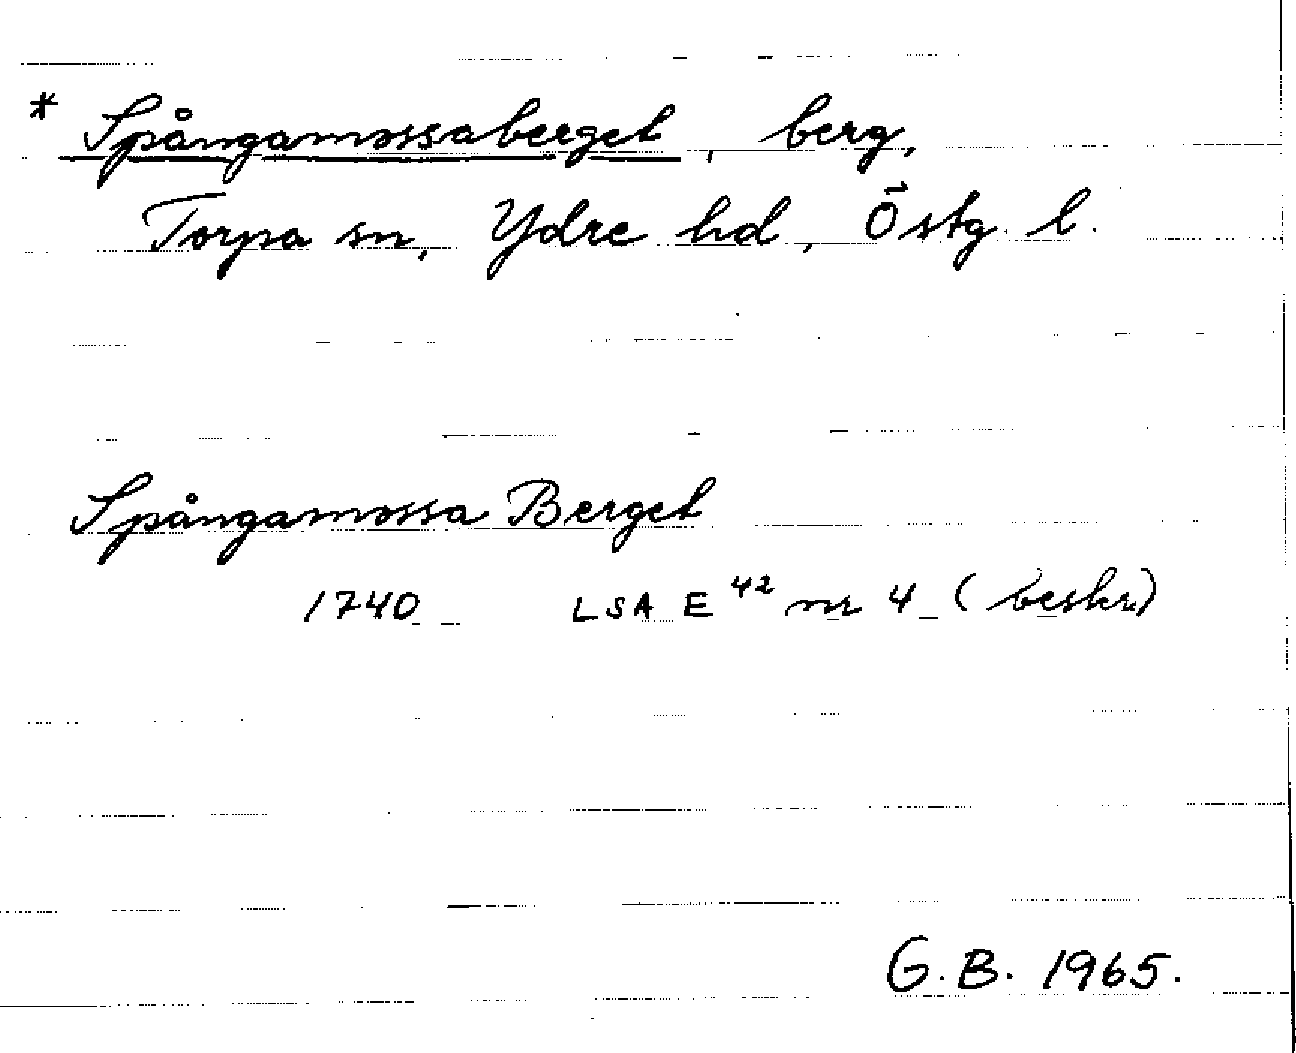 * Spångamossaberget, berg,
Torpa sn, Ydre hd, Östg. l.
Spångamossa Berget
1740 LSA E 42 nr 4 (beskr.)
G.B. 1965.